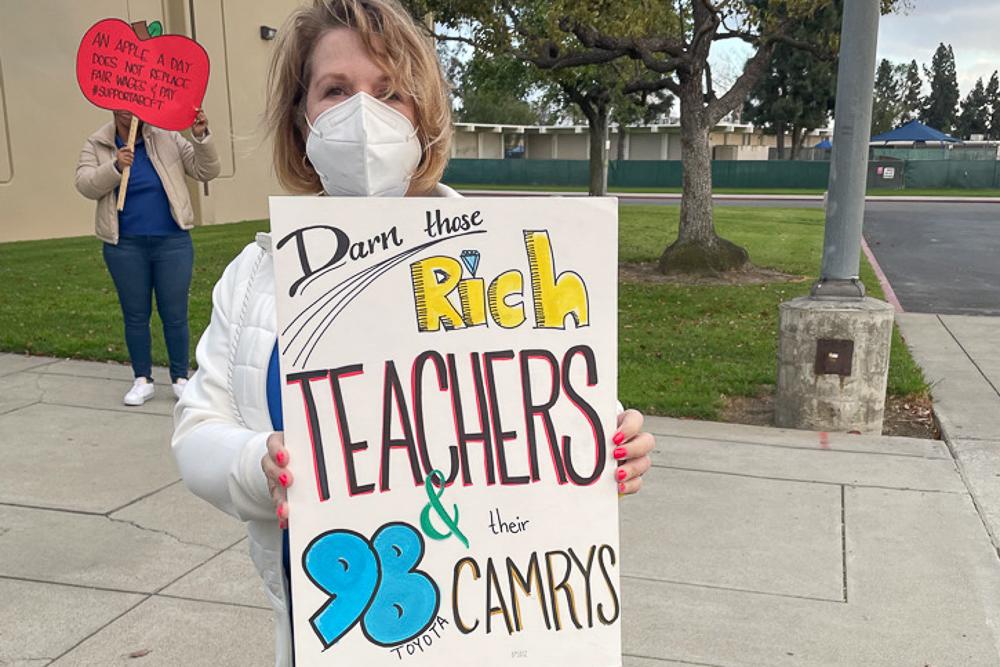 AN APPLE A DAY
DOES NOT REPLACE
FAIR WAGES & PAY
#SUPPORTABCFT
Darn those
Rich
TEACHERS
& their
98 CAMRYS
TOYOTA